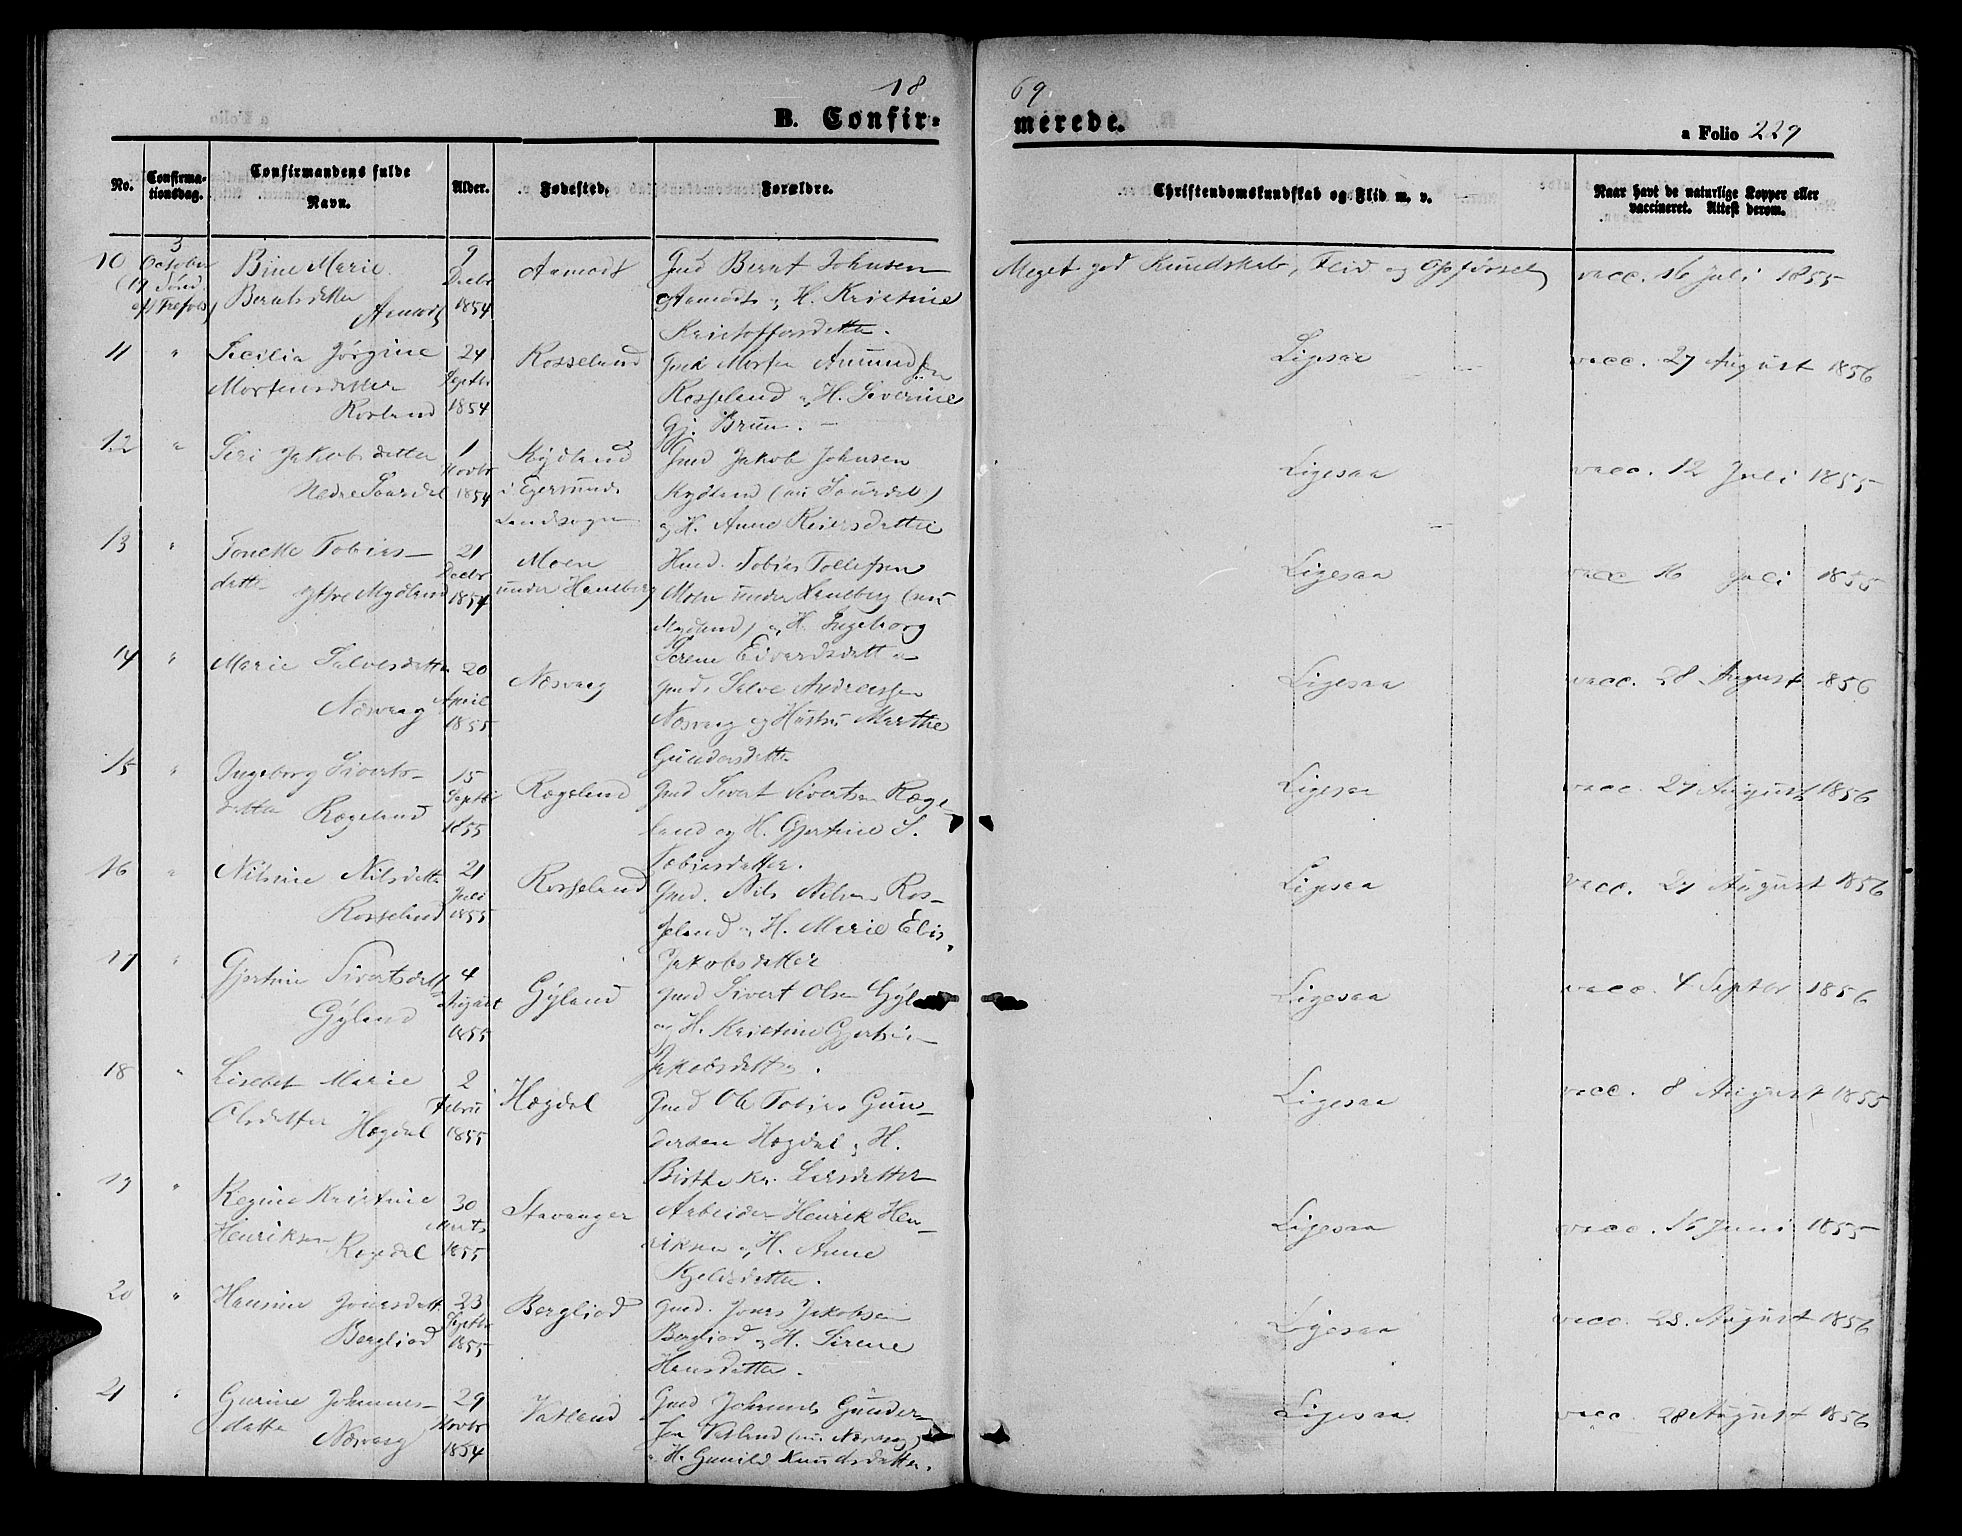 18
69
B. Confir-
merede.
a Folio 229
No.
Confirma-
tionsdag.
Confirmandens fulde
Navn.
Alder.
Fødested.
Forældre.
Christendomskundskab og Flid m. v.
Naar havt de naturlige Kopper eller
vaccineret. Attest derom.
10
3
October
(19 Sønd
af Trefold)
Bine Marie
Berntsdatter
Aamodt
9
Decbr
1854
Aamodt
Gmd Bernt Johnsen
Aamodt og H. Kristine
Kristoffersdatter.
Meget god Kundskab, Flid og Opførsel
vacc. 16 Juli 1855
11 "
Secilia Jørgine
Mortensdatter
Rosland
24
Septbr
1854
Rosseland
Gmd Morten Amundsen
Rosseland og H. Severine
Gj. Bruun. —
Ligesaa
vacc. 27 August 1856
12 "
Siri Jakobsdatter
Nedre Saurdal
1
Novbr
1854
Kydland
i Egersunds
Landsogn
Gmd Jakob Johnsen
Kydland (nu Saurdal)
og H. Anne Reiersdatter
Ligesaa
vacc. 12 Juli 1855
13 "
Tonette Tobias-
datter
ytre Mydland
21
Decbr
1854
Moen
under Haneberg
Husd. Tobias Tollefsen
Moen under Haneberg (nu
Mydland) og H. Ingeborg
Serene Edvardsdatter
Ligesaa
vacc 16 Juli 1855
14 "
Marie Salvesdatter
Nesvaag
20
April
1855
Nesvaag
Gmd. Salve Andreassen
Nesvaag og Hustru Marthe
Gundersdatter
Ligesaa
vacc. 28 August 1856
15 "
Ingeborg Siverts-
datter
Rægeland
15
Septbr
1855
Rægeland
Gmd Sivert Sivertsen Ræge-
land og H. Gjertine S.
Tobiasdatter.
Ligesaa
vacc. 27 August 1856
16 "
Nilsine Nilsdatter
Rosseland
21
Juli
1855
Rosseland
Gmd. Nils Nilsen Ros-
seland og H. Marie Elis.
Jakobsdatter
Ligesaa
vacc. 27 August 1856
17 "
Gjertine Sivertsdatter
Gyland
4
August
1855
Gyland
Gmd Sivert Olsen Gyland
og H. Kristine Gjertine
Jakobsdatter.
Ligesaa
vacc. 4 Septbr 1856
18 "
Lisebet Marie
Olsdatter
Hægdal
2
Februar
1855
Hægdal
Gmd Ole Tobias Gun-
dersen Hægdal og H.
Birthe Kr. Larsdatter
Ligesaa
vacc. 8 August 1855
19 "
Regine Kristine
Henriksen
Regedal
30
Marts
1855
Stavanger
Arbeider Henrik Hen-
riksen og H. Anne
Kjelsdatter.
Ligesaa
vacc. 16 Juni 1855
20 "
Hansine Jonasdatter
Bergliod
23
Septbr
1855
Bergliod
Gmd. Jonas Jakobsen
Bergliod og H. Sirene
Hansdatter.
Ligesaa
vacc. 28. August 1856
21 "
Gurine Johannes-
datter
Nesvaag
29
Novbr
1854
Vatland
Gmd Johannes Gunder-
sen Vatland (nu Nesvaag)
og H. Gunild Knudsdatter.
Ligesaa
vacc 28 August 1856